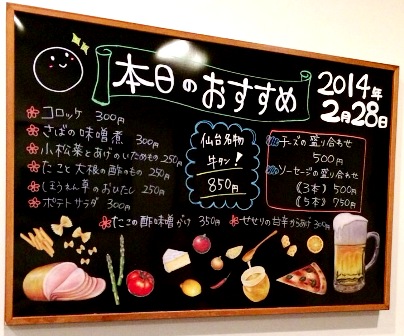 本日のおすすめ
2014年
2月28日
コロッケ 300円
さばの味噌煮 300円
小松菜とあげのいためもの 250円
たこと大根の酢のもの 250円
ほうれん草のおひたし 250円
ポテトサラダ 300円
たこの酢味噌がけ 350円
せせりの甘辛からあげ 300円
仙台名物
牛タン!
850円
チーズの盛り合わせ
500円
ソーセージの盛り合わせ
(3本) 500円
(5本) 750円